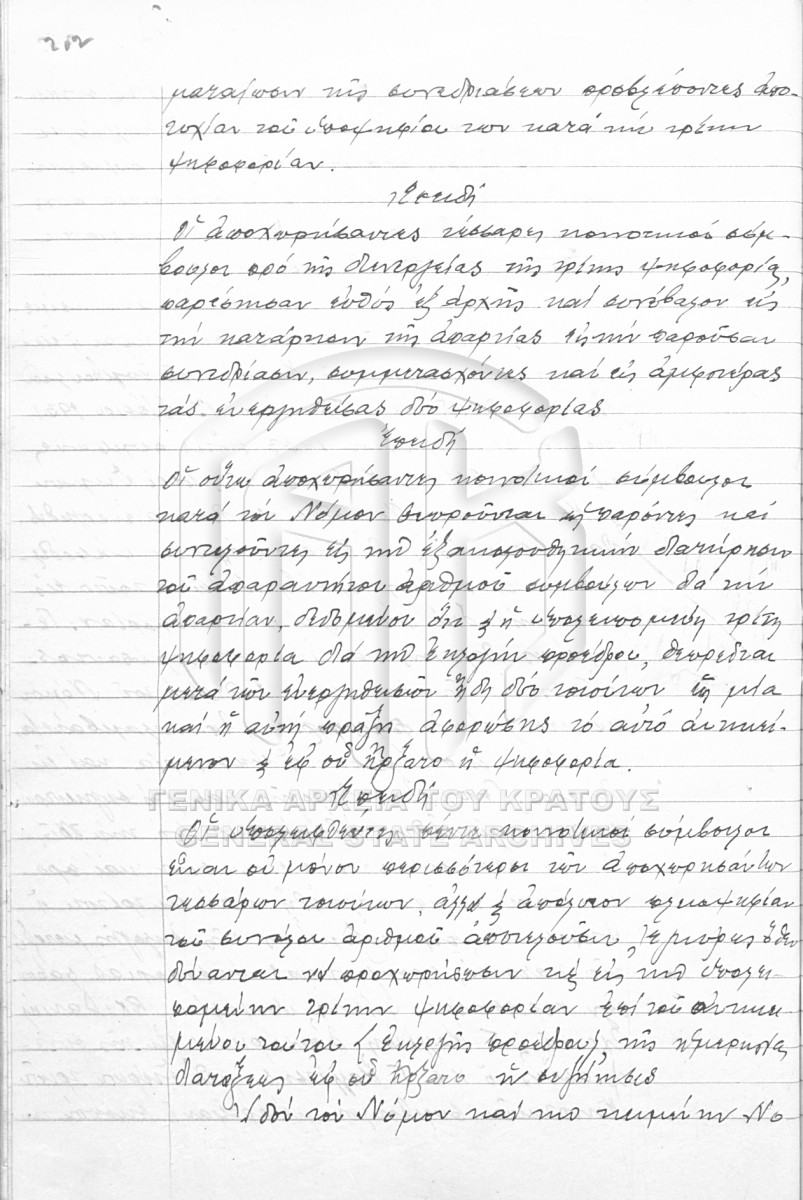 252
ματαίωσιν τῆς συνεδριάσεων προβλέποντες ἀπο-
τυχίαν τοῦ ὑποψηφίου των κατά τήν τρίτην
ψηφοφορίαν.
Ἐπειδή
Οἱ ἀποχωρήσαντες τέσσαρες κοινοτικοί σύμ-
βουλοι πρό τῆς διενεργείας τῆς τρίτης ψηφοφορίας,
παρέστησαν εὐθύς ἐξ ἀρχῆς καί συνέβαλον εἰς
τήν κατάρτησιν τῆς ἀπαρτίας εἰς τήν παροῦσαν
συνεδρίασιν, συμμετασχόντες καί εἰς ἀμφοτέρας
τάς ἐνεργηθείσας δύο ψηφοφορίας
Ἐπειδή
Οἱ οὕτω ἀποχωρήσαντες κοινοτικοί σύμβουλοι
κατά τόν Νόμον θεωροῦνται ὡς παρόντες καί
συντελοῦντες εἰς τήν ἐξακολουθητικήν διατήρησιν
τοῦ ἀπαραιτήτου ἀριθμοῦ συμβούλων διά τήν
ἀπαρτίαν, δεδομένου ὅτι ἡ ὑπολειπομένη τρίτη
ψηφοφορία διά τήν ἐκλογήν προέδρου, θεωρεῖται
μετά τῶν ἐνεργηθεισῶν ἤδη δύο τοιούτων ὡς μία
καί ἡ αὐτή πρᾶξις ἀφορώσης τό αὐτό ἀντικεί-
μενον ἐφ οὗ ἤρξατο ἡ ψηφοφορία.
Ἐπειδή
ΓΕΝΙΚΑ ΑΡΧΕΙΑ ΤΟΥ ΚΡΑΤΟΥΣ
GENERAL STATE ARCHIVES
Οἱ ὑπολειφθέντες πέντε κοινοτικοί σύμβουλοι
εἶναι οὐ μόνον περισσότεροι τῶν ἀποχωρησάντων
τεσσάρων τοιούτων, ἀλλά ἀπόλυτον πλειοψηφίαν
τοῦ συνόλου ἀριθμοῦ ἀποτελοῦσιν, ὅθεν
δύνανται νά προχωρήσωσιν καί εἰς τήν ὑπολει-
πομένην τρίτην ψηφοφορίαν ἐπί τοῦ ἀντικει-
μένου τούτου (ἐκλογῆς προέδρου), τῆς ἡμερησίας
διατάξεως ἐφ οὗ ἤρξατο ἡ συζήτησις
Ἰδόν τόν Νόμον καί τήν κειμένην Νο-